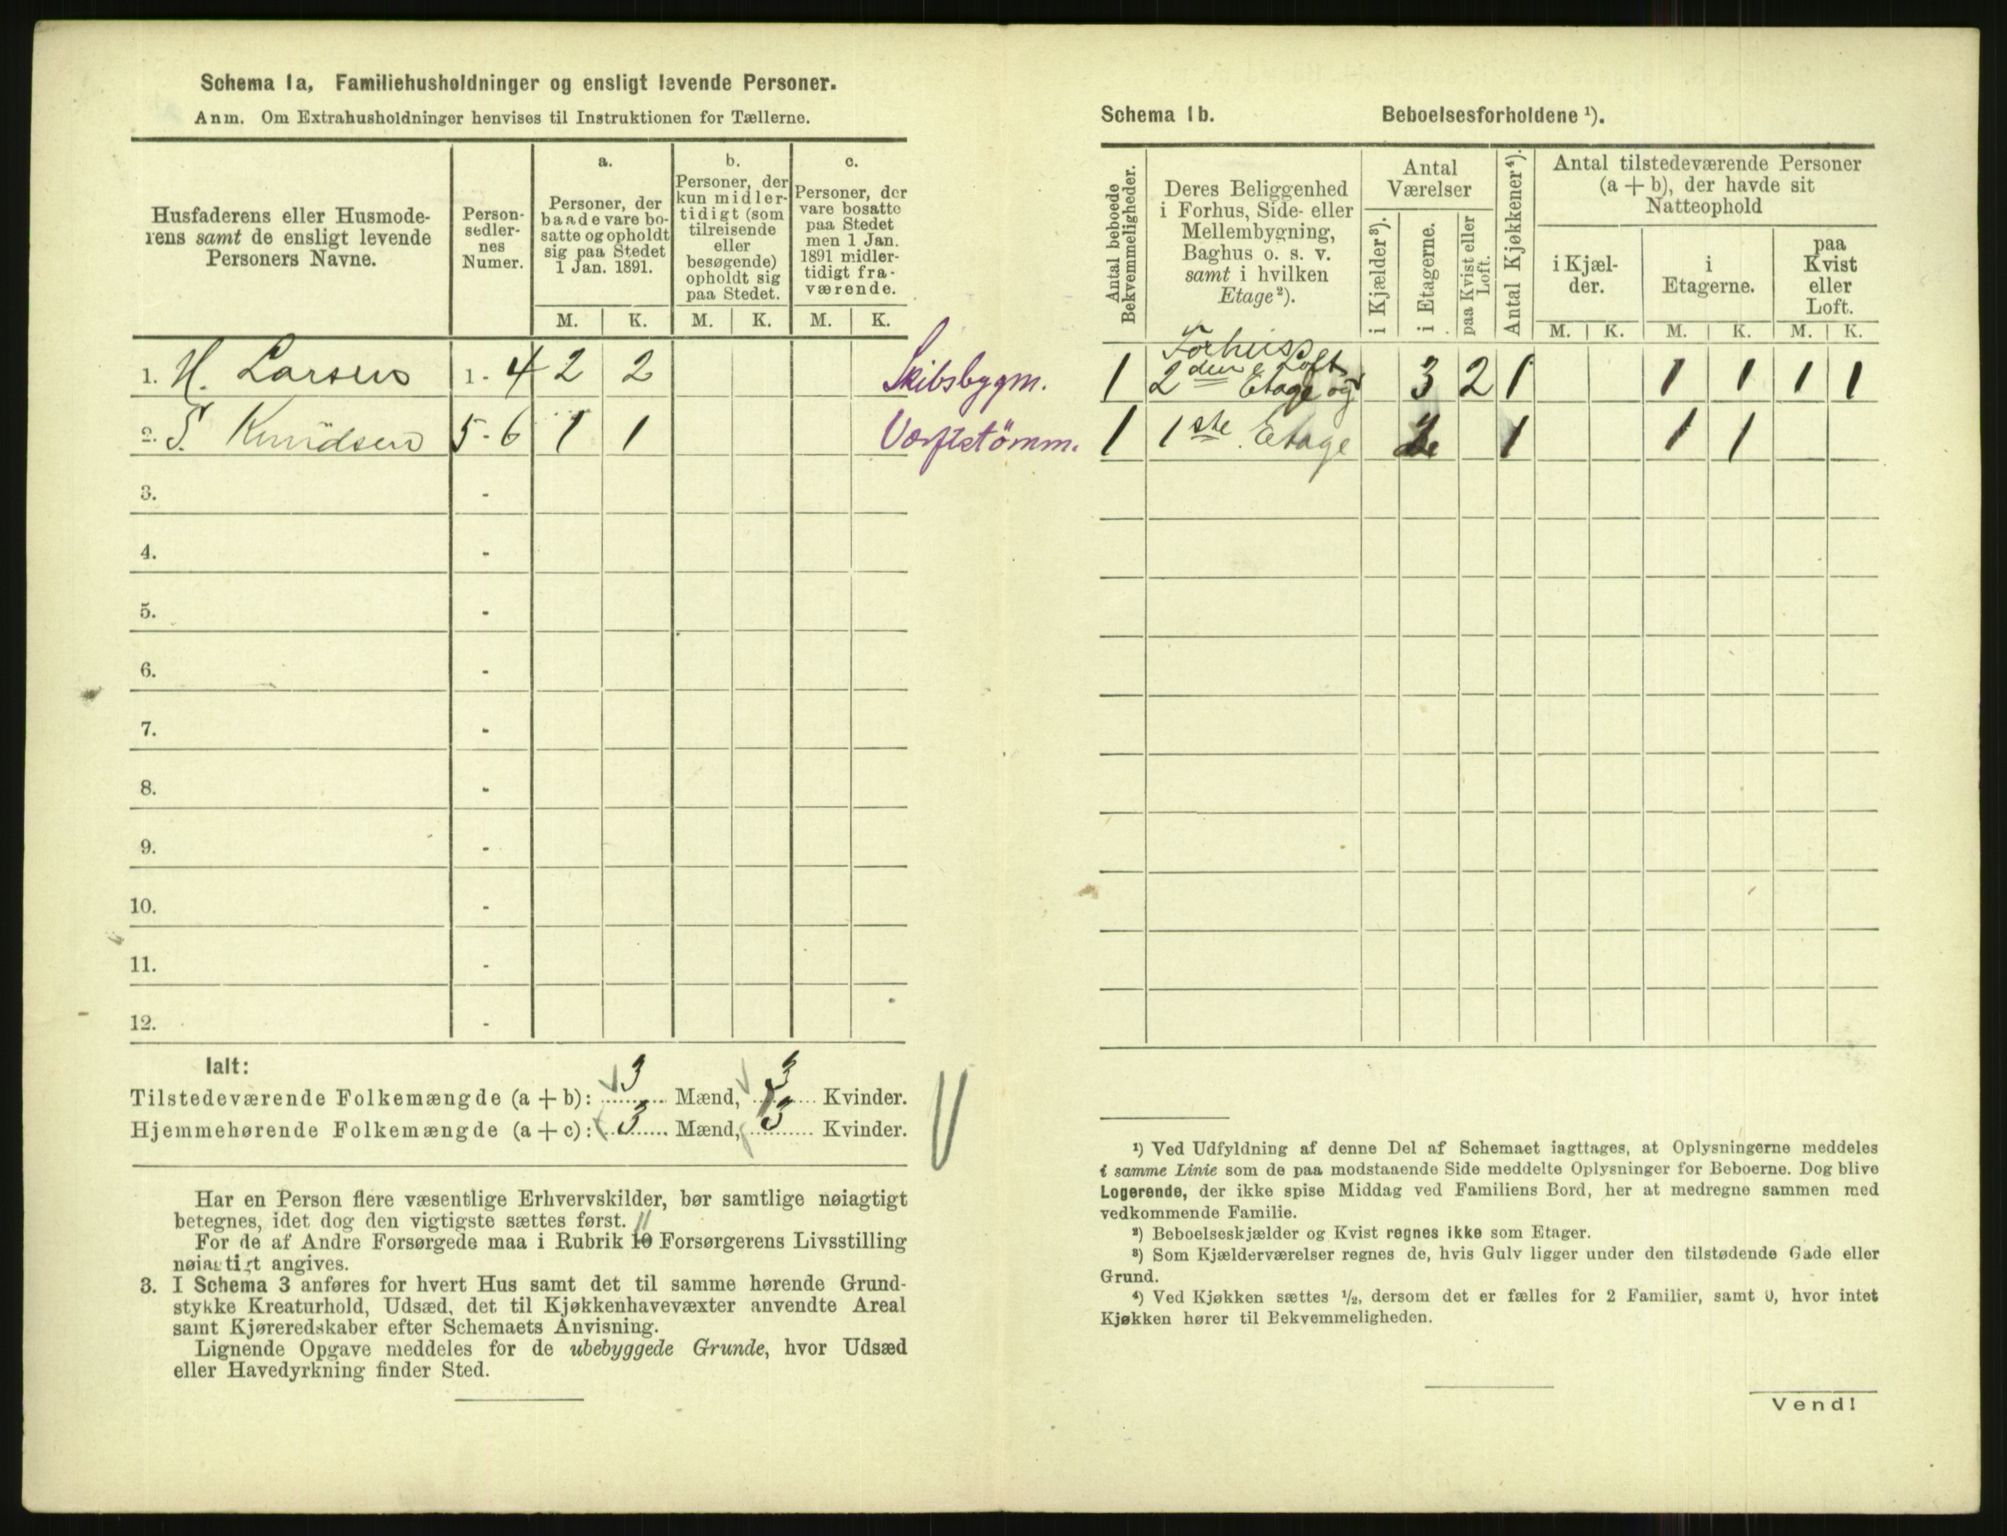 Schema 1a, Familiehusholdninger og ensligt levende Personer.
Anm. Om Extrahusholdninger henvises til Instruktionen for Tællerne.
Husfaderens eller Husmode-
rens samt de ensligt levende
Personers Navne.
Person-
sedler-
nes
Numer.
a.
Personer, der
baade vare bo-
satte og opholdt
sig paa Stedet
1 Jan. 1891.
b.
Personer, der
kun midler-
tidigt (som
tilreisende
eller
besøgende)
opholdt sig
paa Stedet.
c.
Personer, der
vare bosatte
paa Stedet
men 1 Jan.
1891 midler-
tidigt fra-
værende.
M. K. M. K. M. K.
1. H. Larsen 1 - 4 2 2 Skibsbygm.
2. S. Knudsen 5 - 6 1 1 Værftstømm.
3. -
4. -
5. -
6. -
7. -
8. -
9. -
10. -
11. -
12. -
Ialt:
Tilstedeværende Folkemængde (a + b): 3 Mænd, 3 Kvinder.
Hjemmehørende Folkemængde (a + c): 3 Mænd, 3 Kvinder.
Har en Person flere væsentlige Erhvervskilder, bør samtlige nøiagtigt
betegnes, idet dog den vigtigste sættes først.
11
For de af Andre Forsørgede maa i Rubrik 10 Forsørgerens Livsstilling
nøiagtigt angives.
3. I Schema 3 anføres for hvert Hus samt det til samme hørende Grund-
stykke Kreaturhold, Udsæd, det til Kjøkkenhavevæxter anvendte Areal
samt Kjøreredskaber efter Schemaets Anvisning.
Lignende Opgave meddeles for de ubebyggede Grunde, hvor Udsæd
eller Havedyrkning finder Sted.
Schema 1b. Beboelsesforholdene ¹).
Antal beboede
Bekvemmeligheder.
Deres Beliggenhed
i Forhus, Side- eller
Mellembygning,
Baghus o. s. v.
samt i hvilken
Etage ²).
Antal
Værelser
i Kjælder ³).
i Etagerne.
paa Kvist eller
Loft.
Antal Kjøkkener ⁴).
Antal tilstedeværende Personer
(a + b), der havde sit
Natteophold
i Kjæl-
der.
i
Etagerne.
paa
Kvist
eller
Loft.
M. K. M. K. M. K.
Forhus
1 2den Etage og Loft 3 2 1 1 1 1 1
1 1ste Etage 1 1 1
¹) Ved Udfyldning af denne Del af Schemaet iagttages, at Oplysningerne meddeles
i samme Linie som de paa modstaaende Side meddelte Oplysninger for Beboerne. Dog blive
Logerende, der ikke spise Middag ved Familiens Bord, her at medregne sammen med
vedkommende Familie.
²) Beboelseskjælder og Kvist regnes ikke som Etager.
³) Som Kjælderværelser regnes de, hvis Gulv ligger under den tilstødende Gade eller
Grund.
⁴) Ved Kjøkken sættes ½, dersom det er fælles for 2 Familier, samt 0, hvor intet
Kjøkken hører til Bekvemmeligheden.
Vend!